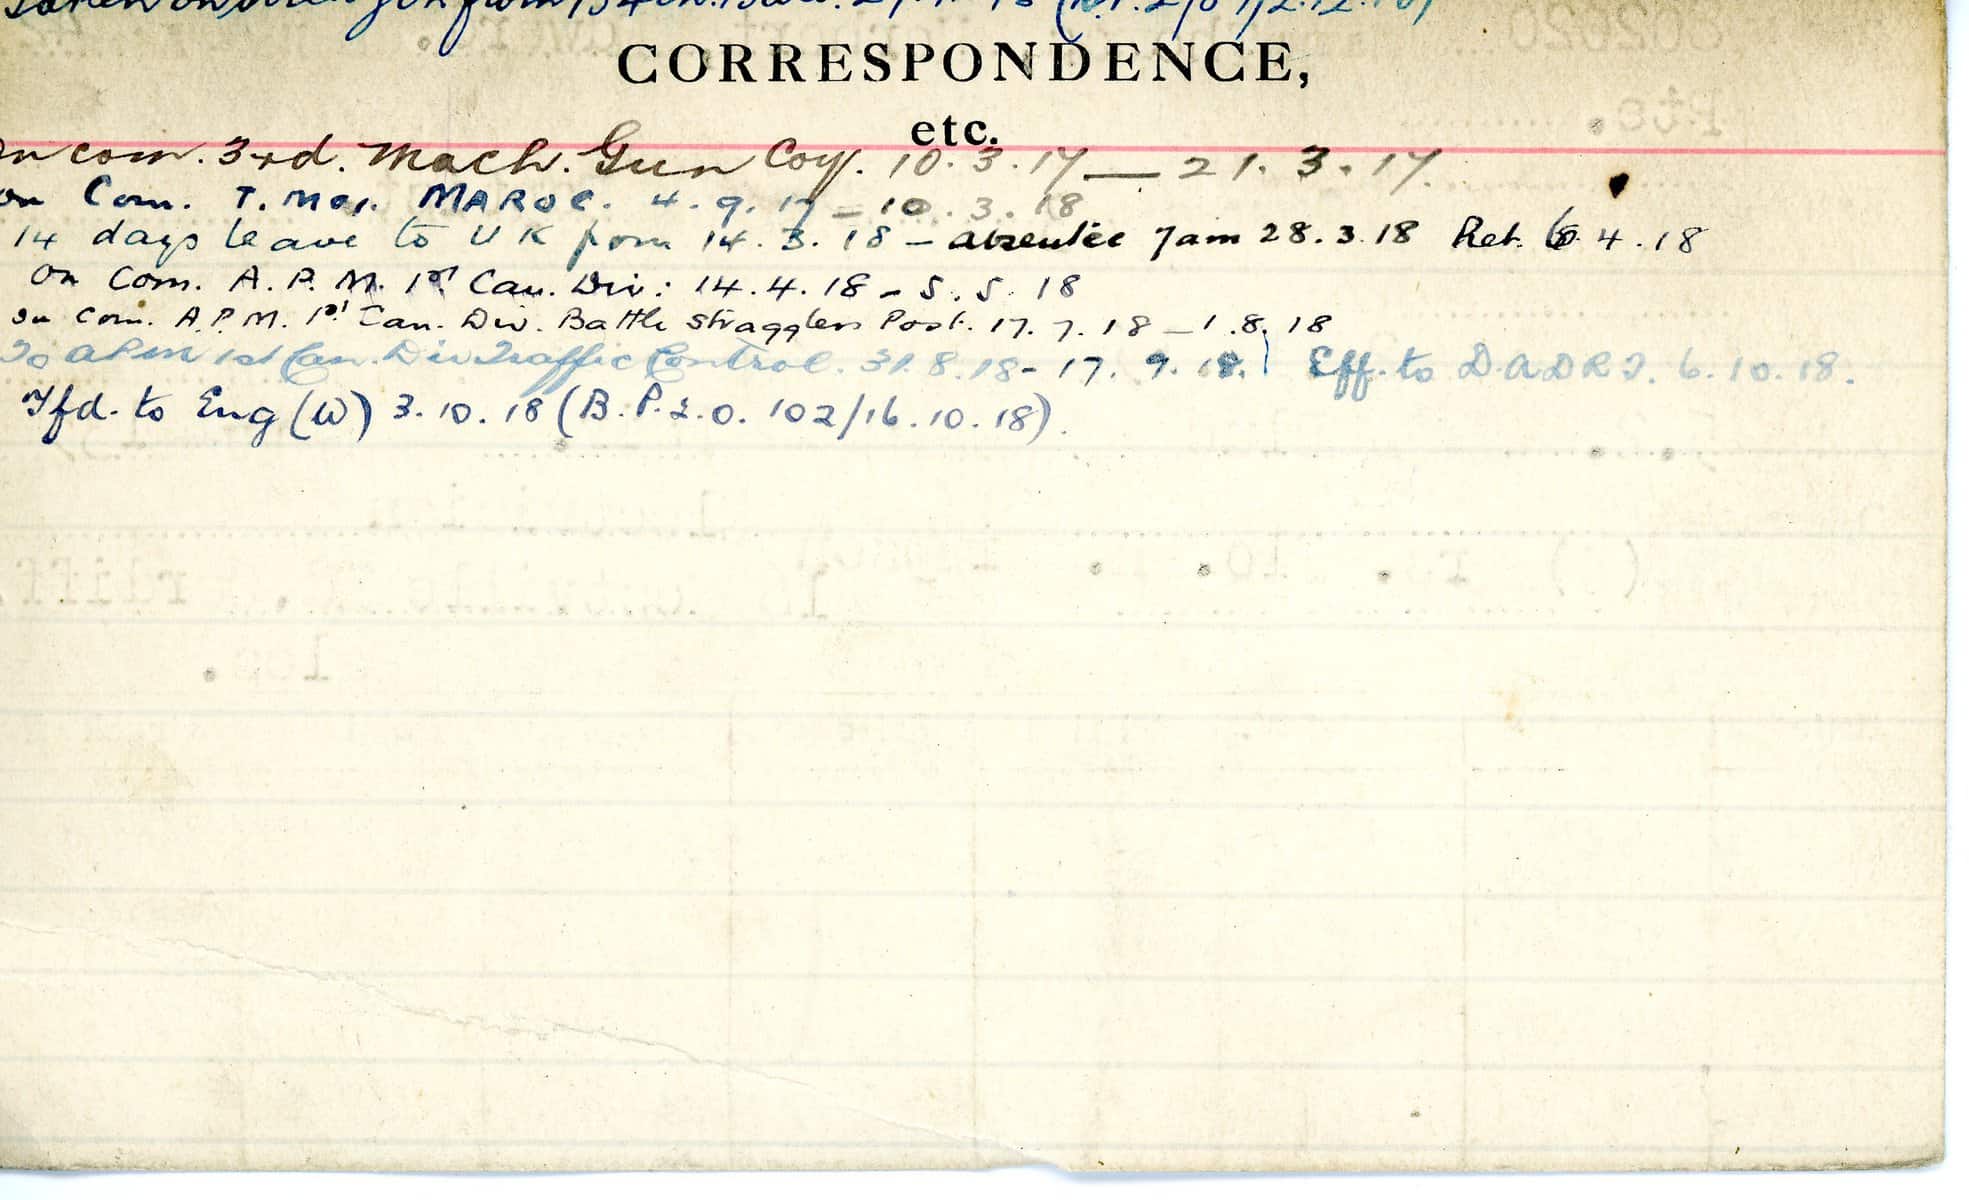 Taken on from 134th. 2.12.18)
CORRESPONDENCE,
etc.
On com. 3rd. Mach. Gun Coy. 10.3.17 — 21.3.17.
on Com. T. Mor. MAROC. 4.9.17 – 10.3.18
14 days leave to UK from 14.3.18 – absentee 7am 28.3.18 Ret. 4.18
On Com. A.P.M. 1st Can. Div: 14.4.18 – 5.5.18
On Com. A.P.M. 1st Can. Div. Battle Stragglers Post. 17.7.18 – 1.8.18
To APM 1st Can. Div Traffic Control. 31.8.18 – 17.9.18. Eff. to D.A.D.R.T. 6.10.18.
Tfd. to Eng (W) 3.10.18 (B.P.2.0. 102/16.10.18).
802020
Pte.